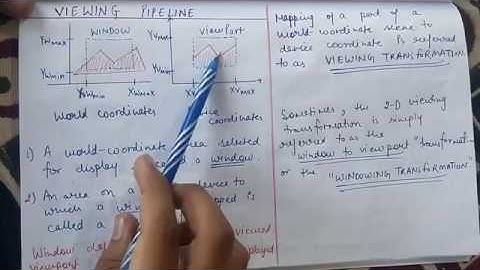 VIEWING PIPELINE
WINDOW
YWmax
YWmin
XWmin
XWmax
World coordinates
Viewport
YVmax
YVmin
XVmax
coordinates
1) A world-coordinate area selected
for display called a window.
2) An area on a device to
which a mapped is
called a
Window
viewed
displayed
viewport
Mapping of a part of a
world-coordinate scene to
device coordinate is referred
to as VIEWING TRANSFORMATION.
Sometimes, the 2-D viewing
transformation is simply
referred to as the
window to viewport transformation
or the "WINDOWING TRANSFORMATION"